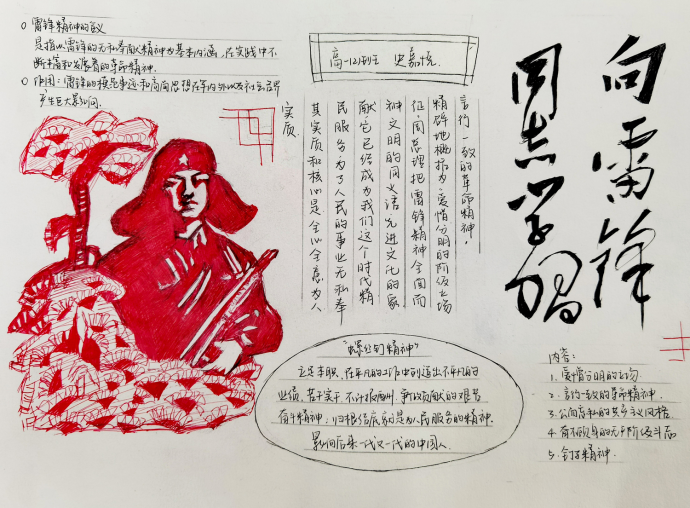 雷锋精神的含义
是指以雷锋的无私奉献精神为基本内涵，在实践中不
断丰富和发展着的革命精神。
作用：雷锋的模范事迹和高尚思想在军内外以及社会各界
产生巨大影响。
高一(2)班 史嘉悦
向雷锋
同志学习
言行一致的革命精神。
精辟地概括为"爱憎分明的阶级立场
征，周总理把雷锋精神全面而
神文明的同义语，先进文化的象
献它已经成为我们这个时代精
民服务，为了人民的事业无私奉
其实质和核心是全心全意为人
实质
"螺丝钉精神"
立足本职，在平凡的工作中创造出不平凡的
业绩，苦干实干，不计报酬，争做贡献的艰苦
奋斗精神；归根结底就是为人民服务的精神。
影响后来一代又一代的中国人。
内容：
1. 爱憎分明的立场
2. 言行一致的革命精神。
3. 公而忘私的共产主义风格
4. 奋不顾身的无产阶级斗志
5. 钉子精神。